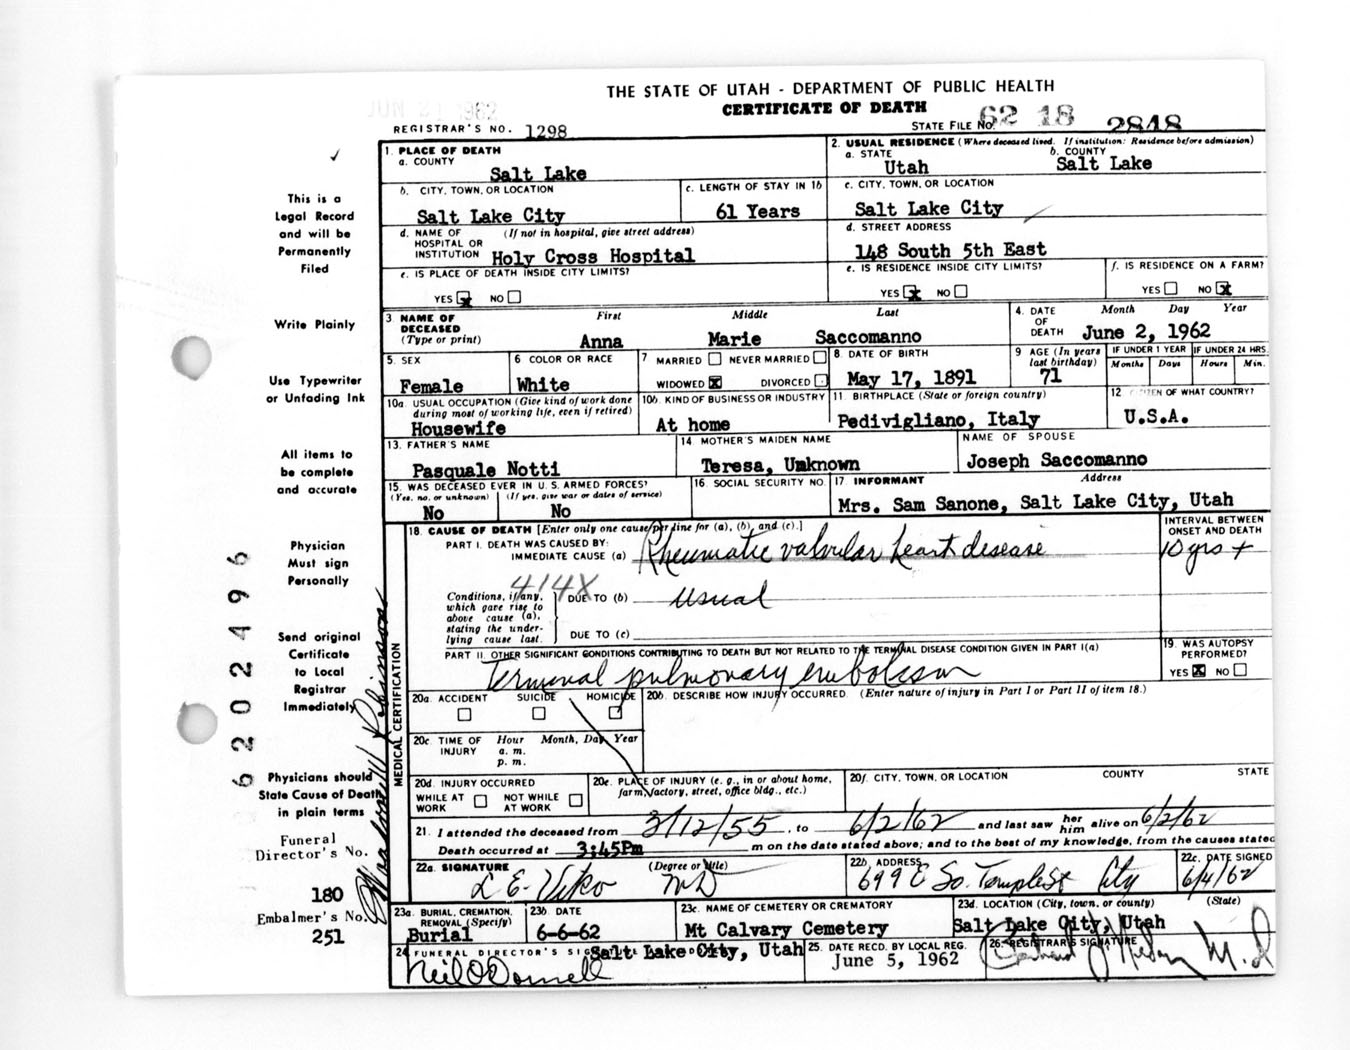 THE STATE OF UTAH - DEPARTMENT OF PUBLIC HEALTH
JUN 21 1962
CERTIFICATE OF DEATH
REGISTRAR'S NO. 1298
STATE FILE NO. 62 18 2848
1. PLACE OF DEATH
a. COUNTY
Salt Lake
2. USUAL RESIDENCE (Where deceased lived. If institution: Residence before admission)
a. STATE
Utah
b. COUNTY
Salt Lake
b. CITY, TOWN, OR LOCATION
Salt Lake City
c. LENGTH OF STAY IN 1b
61 Years
c. CITY, TOWN, OR LOCATION
Salt Lake City
d. NAME OF HOSPITAL OR INSTITUTION
(If not in hospital, give street address)
Holy Cross Hospital
d. STREET ADDRESS
148 South 5th East
e. IS PLACE OF DEATH INSIDE CITY LIMITS?
YES x NO
e. IS RESIDENCE INSIDE CITY LIMITS?
YES x NO
f. IS RESIDENCE ON A FARM?
YES NO x
3 NAME OF DECEASED (Type or print)
First Middle Last
Anna Marie Saccomanno
4. DATE OF DEATH
Month Day Year
June 2, 1962
5. SEX
Female
6 COLOR OR RACE
White
7 MARRIED NEVER MARRIED
WIDOWED x DIVORCED
8. DATE OF BIRTH
May 17, 1891
9 AGE (In years last birthday)
71
IF UNDER 1 YEAR
Months Days
IF UNDER 24 HRS.
Hours Min.
10a. USUAL OCCUPATION (Give kind of work done during most of working life, even if retired)
Housewife
10b. KIND OF BUSINESS OR INDUSTRY
At home
11. BIRTHPLACE (State or foreign country)
Pedivigliano, Italy
12 CITIZEN OF WHAT COUNTRY?
U.S.A.
13. FATHER'S NAME
Pasquale Notti
14 MOTHER'S MAIDEN NAME
Teresa, Unknown
NAME OF SPOUSE
Joseph Saccomanno
15. WAS DECEASED EVER IN U. S. ARMED FORCES?
(Yes, no, or unknown) (If yes, give war or dates of service)
No No
16. SOCIAL SECURITY NO.
17. INFORMANT Address
Mrs. Sam Sanone, Salt Lake City, Utah
18. CAUSE OF DEATH [Enter only one cause per line for (a), (b), and (c).]
INTERVAL BETWEEN ONSET AND DEATH
PART I. DEATH WAS CAUSED BY:
IMMEDIATE CAUSE (a) Rheumatic valvular heart disease
10 yrs +
414X
Conditions, if any, which gave rise to above cause (a), stating the underlying cause last.
DUE TO (b) usual
DUE TO (c)
PART II. OTHER SIGNIFICANT CONDITIONS CONTRIBUTING TO DEATH BUT NOT RELATED TO THE TERMINAL DISEASE CONDITION GIVEN IN PART I(a)
Terminal pulmonary embolism
19. WAS AUTOPSY PERFORMED?
YES x NO
20a. ACCIDENT SUICIDE HOMICIDE
20b. DESCRIBE HOW INJURY OCCURRED. (Enter nature of injury in Part I or Part II of item 18.)
20c. TIME OF INJURY
Hour Month, Day, Year
a. m.
p. m.
20d. INJURY OCCURRED
WHILE AT WORK NOT WHILE AT WORK
20e. PLACE OF INJURY (e. g., in or about home, farm, factory, street, office bldg., etc.)
20f. CITY, TOWN, OR LOCATION COUNTY STATE
21. I attended the deceased from 3/12/55, to 6/2/62 and last saw her him alive on 6/2/62
Death occurred at 3:45Pm m on the date stated above; and to the best of my knowledge, from the causes stated
22a. SIGNATURE (Degree or title)
L E. Viko MD
22b. ADDRESS
699 E So. Temple St City
22c. DATE SIGNED
6/4/62
23a. BURIAL, CREMATION, REMOVAL (Specify)
Burial
23b. DATE
6-6-62
23c. NAME OF CEMETERY OR CREMATORY
Mt Calvary Cemetery
23d. LOCATION (City, town, or county) (State)
Salt Lake City, Utah
24 FUNERAL DIRECTOR'S SIGNATURE
Salt Lake City, Utah
Neil O'Donnell
25. DATE RECD. BY LOCAL REG.
June 5, 1962
26. REGISTRAR'S SIGNATURE
M. D
MEDICAL CERTIFICATION
This is a
Legal Record
and will be
Permanently
Filed
Write Plainly
Use Typewriter
or Unfading Ink
All items to
be complete
and accurate
Physician
Must sign
Personally
Send original
Certificate
to Local
Registrar
Immediately
Physicians should
State Cause of Death
in plain terms
Funeral
Director's No.
180
Embalmer's No.
251
6202496
Robinson